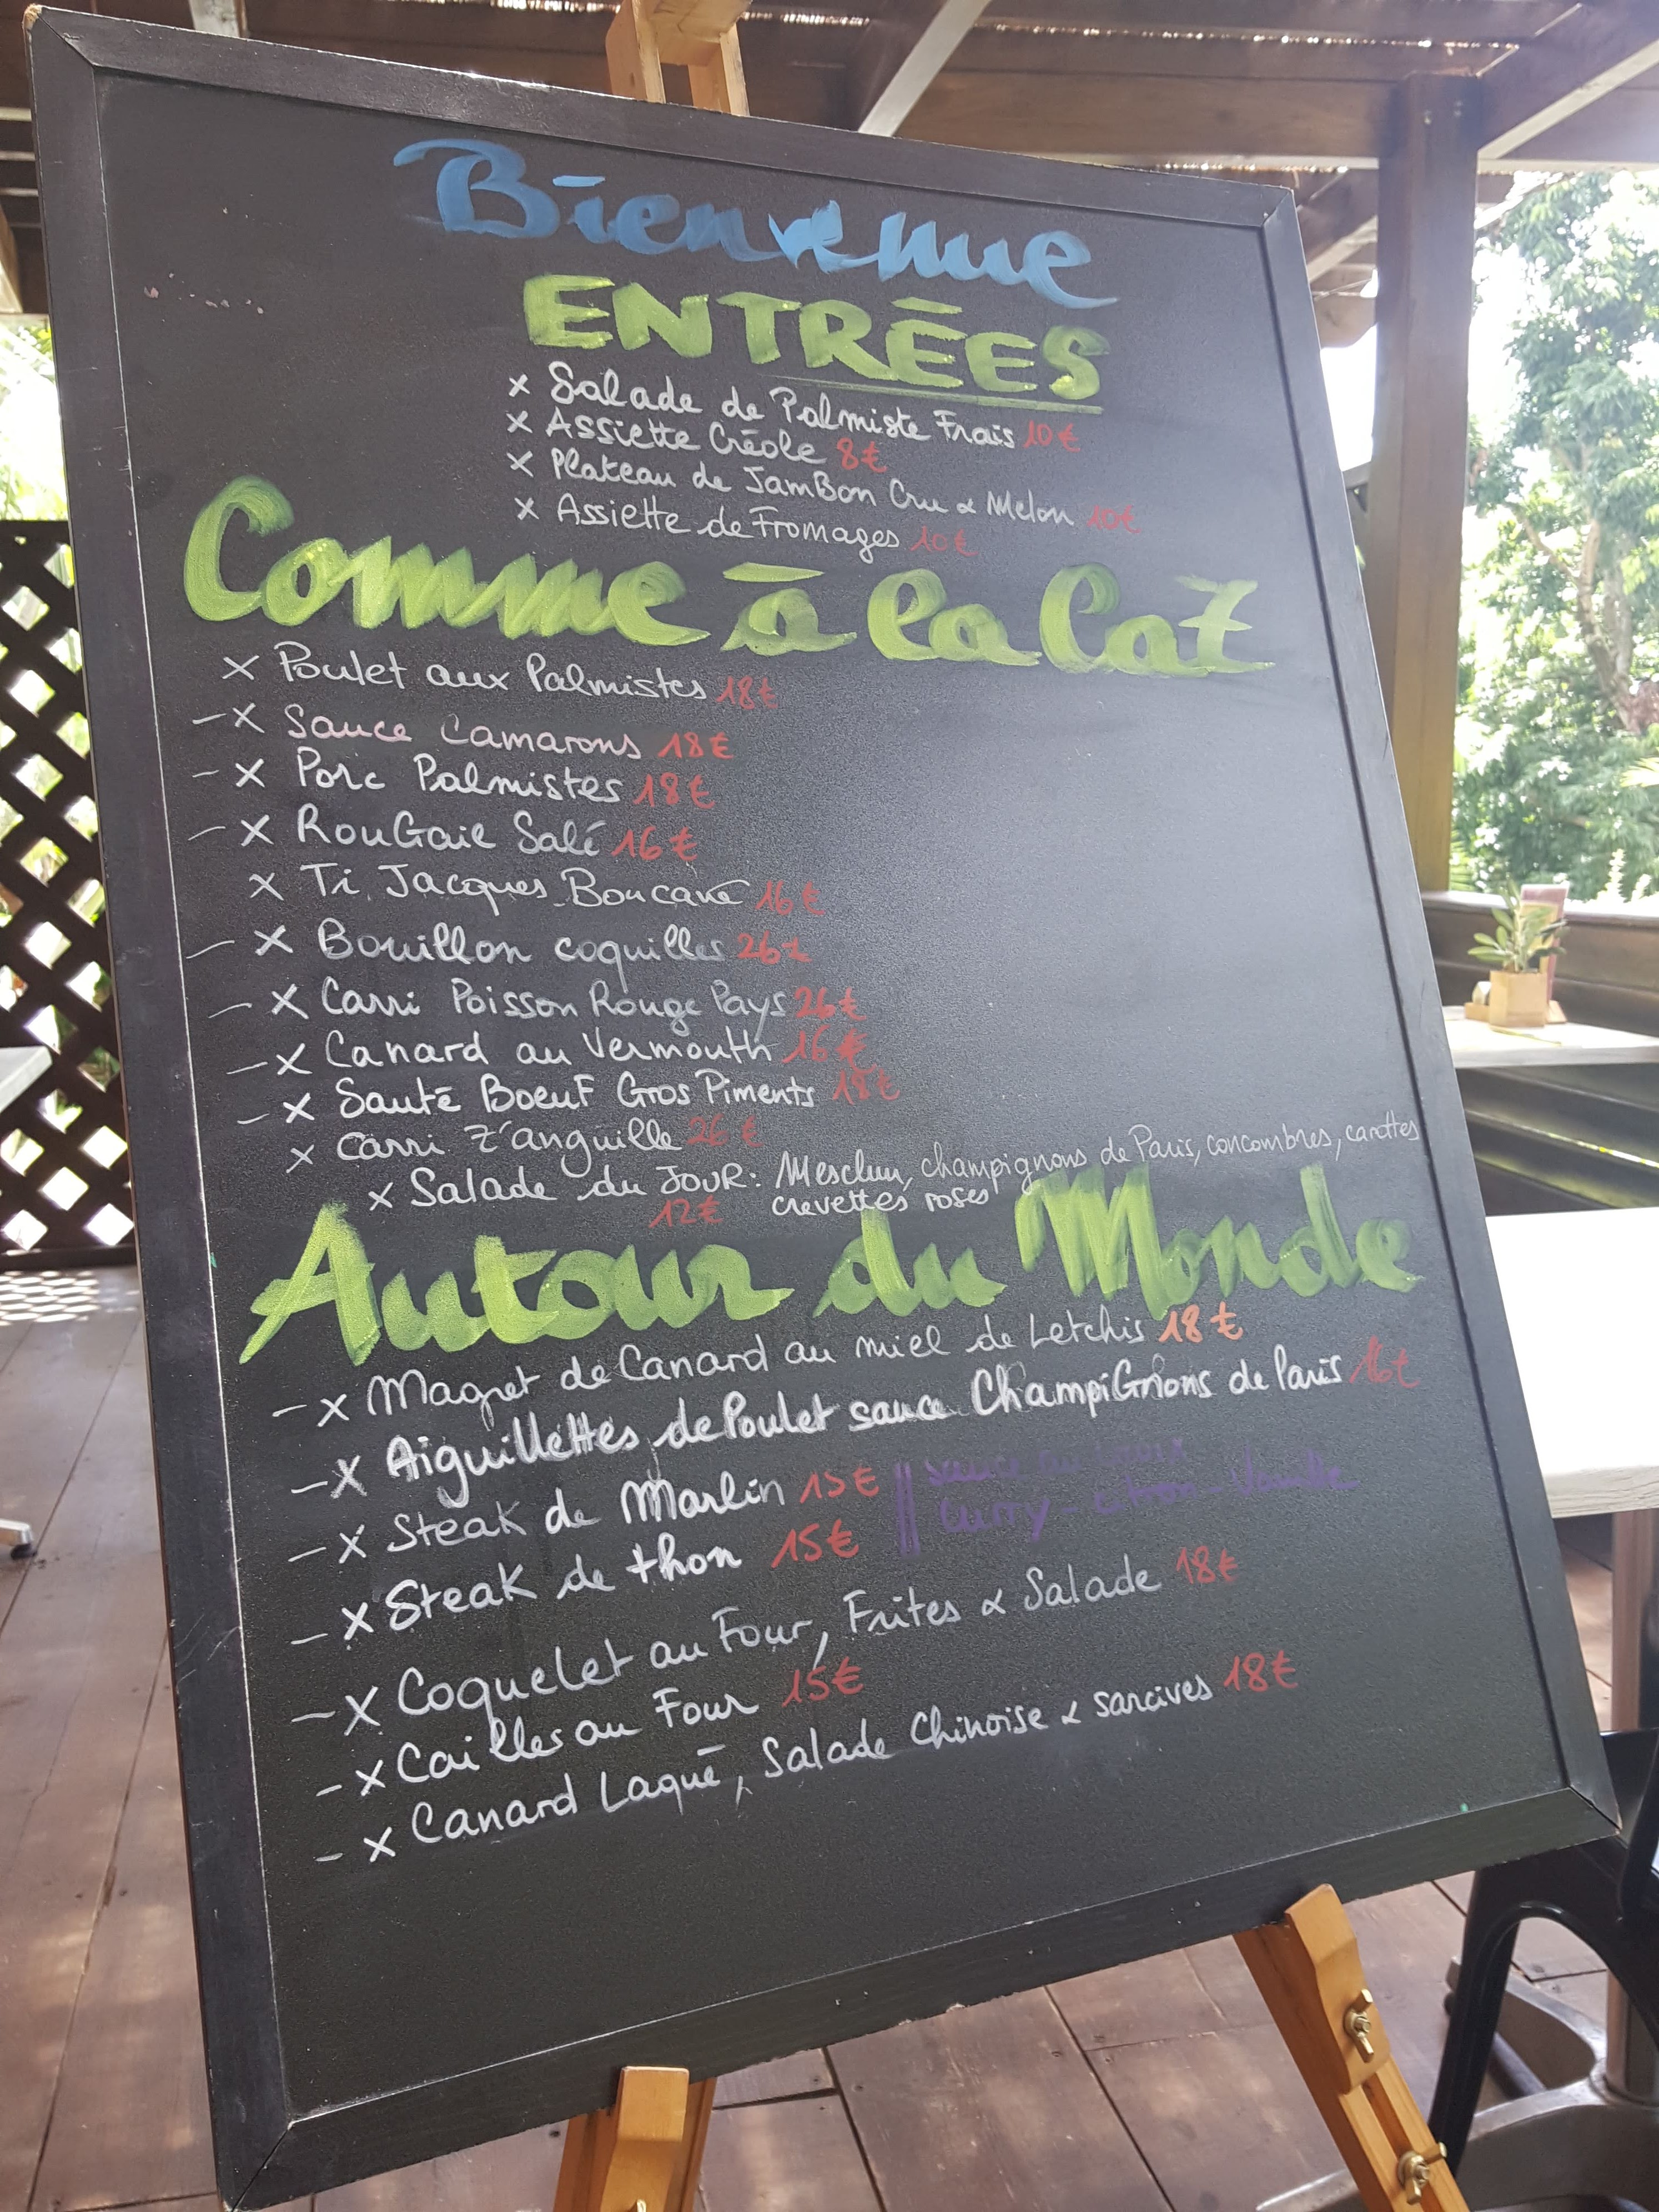 Bienvenue
ENTRÉES
x Salade de Palmiste Frais 10€
x Assiette Créole 8€
x Plateau de Jambon Cru & Melon 10€
x Assiette de Fromages 10€
Comme à la Caz
x Poulet aux Palmistes 18€
- x Sauce Camarons 18€
- x Porc Palmistes 18€
- x RouGail Salé 16€
x Ti Jacques Boucané 16€
- x Bouillon coquilles 26€
- x Carri Poisson Rouge Pays 26€
- x Canard au Vermouth 16€
- x Sauté Boeuf Gros Piments 18€
x Carri Z'anguille 26€
x Salade du JOUR: Mesclun, champignons de Paris, concombres, carottes
12€ crevettes roses
Autour du Monde
- x Magret de Canard au miel de Letchis 18€
- x Aiguillettes de Poulet sauce ChampiGnons de Paris 16€
- x Steak de Marlin 15€ || sauce au choix
- x Steak de thon 15€ || Curry - citron - Vanille
- x Coquelet au Four, Frites & Salade 18€
- x Cailles au Four 15€
- x Canard Laqué, Salade Chinoise & sarcives 18€